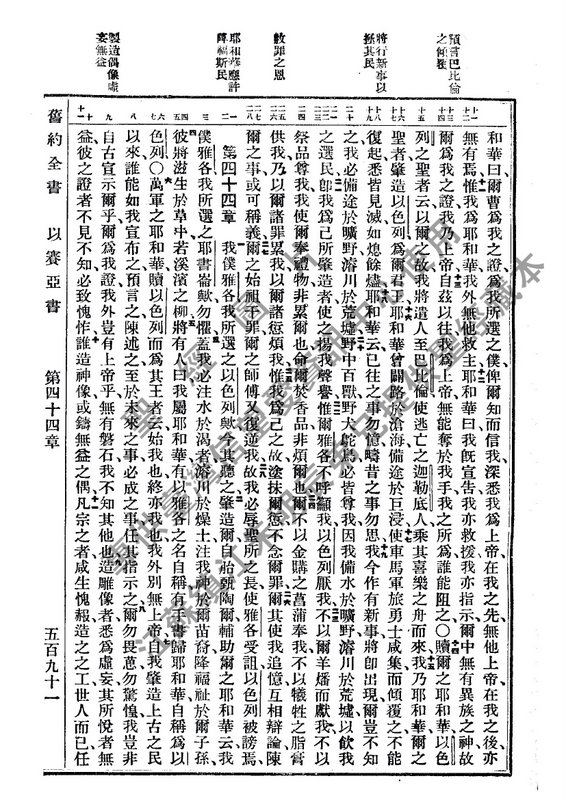 預言巴比倫
之傾覆
將行新事以
拯其民
赦罪之恩
耶和華應許
降福斯民
製造偶像虛
妄無益
和華曰爾曹爲我之證爲我所選之僕俾爾知而信我深悉我爲上帝在我之先無他上帝在我之後亦
無有焉惟我爲耶和華我外無他救主耶和華曰我旣宣告我亦救援我亦指示爾中無有異族之神故
爾爲我之證我乃上帝自茲以往我爲上帝無能奪於我手我之所爲誰能阻之〇贖爾之耶和華以色
列之聖者云以爾之故我將遣人至巴比倫使逃亡之迦勒底人乘其喜樂之舟而來我乃耶和華爾之
聖者肇造以色列爲爾君王耶和華曾闢路於滄海備途於巨浸使車馬軍旅勇士咸集而傾覆之不能
復起悉皆見滅如熄餘燼耶和華云已往之事勿憶疇昔之事勿思我今作有新事將卽出現爾豈不知
之我必備途於曠野濬川於荒墟野中百獸野犬鴕鳥必皆尊我因我備水於曠野濬川於荒墟以飲我
之選民卽我爲己所肇造者使之揚我聲譽惟爾雅各不呼籲我以色列厭我不以爾羊燔而獻我不以
祭品尊我我使爾奉禮物非累爾也命爾焚香品非煩爾也爾不以金購之菖蒲奉我不以犧牲之脂膏
供我乃以爾諸罪累我以爾諸愆煩我惟我爲己之故塗抹爾愆不念爾罪爾其使我追憶互相辯論陳
爾之事或可稱義爾之始祖干罪爾之師傅又復逆我故我必辱聖所之長使雅各受詛以色列被謗焉
第四十四章 我僕雅各我所選之以色列歟今其聽之肇造爾自胎甄陶爾輔助爾之耶和華云我
僕雅各我所選之耶書崙歟勿懼蓋我必注水於渴者濬川於燥土注我神於爾苗裔降福祉於爾子孫
彼將滋生於草中若溪濱之柳將有人曰我屬耶和華有以雅各之名自稱有手書歸耶和華自稱爲以
色列〇萬軍之耶和華贖以色列而爲其王者云始我也終我也我外別無上帝自我肇造上古之民
以來誰能如我宣布之預言之陳述之至於未來之事必成之事任其指示之爾勿畏葸勿驚惶我豈非
自古宣示爾乎爾爲我證我外豈有上帝乎無有磐石我不知其他也造雕像者悉爲虛妄其所悅者無
益彼之證者不見不知必致愧怍誰造神像或鑄無益之偶凡宗之者咸生愧赧造之之工世人而已任
舊約全書 以賽亞書 第四十四章 五百九十一